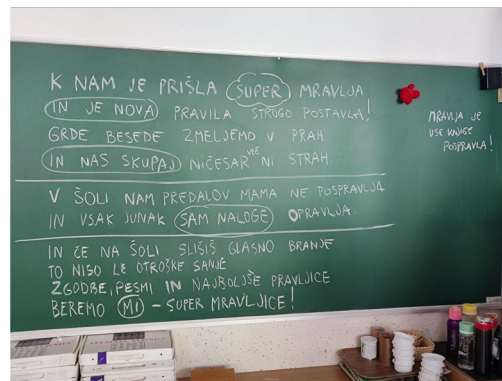 K NAM JE PRIŠLA SUPER MRAVLJA
IN JE NOVA PRAVILA STROGO POSTAVLA!
GRDE BESEDE ZMELJEMO V PRAH
IN NAS SKUPAJ NIČESAR VEČ NI STRAH
V ŠOLI NAM PREDALOV MAMA NE POSPRAVLJA
IN VSAK JUNAK SAM NALOGE OPRAVLJA.
IN ČE NA ŠOLI SLIŠIŠ GLASNO BRANJE
TO NISO LE OTROŠKE SANJE
ZGODBE, PESMI IN NAJBOLJŠE PRAVLJICE
BEREMO MI – SUPER MRAVLJICE!
MRAVLJA JE
VSE KNJIGE
POSPRAVLA!